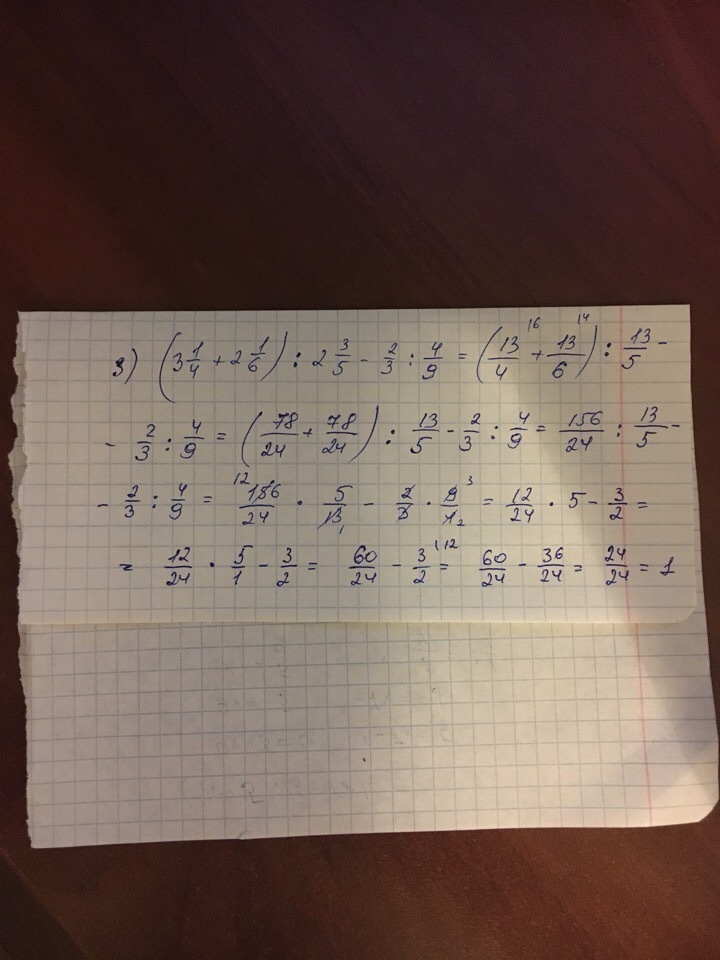 9) (3 1/4 + 2 1/6) : 2 3/5 - 2/3 : 4/9 = (13/4 \16 + 13/6 \14) : 13/5 -
- 2/3 : 4/9 = (78/24 + 78/24) : 13/5 - 2/3 : 4/9 = 156/24 : 13/5 -
- 2/3 : 4/9 = 12 156/24 · 5/13 1 - 2/3 · 9 3/4 2 = 12/24 · 5 - 3/2 =
= 12/24 · 5/1 - 3/2 = 60/24 - 3/2 \12 = 60/24 - 36/24 = 24/24 = 1